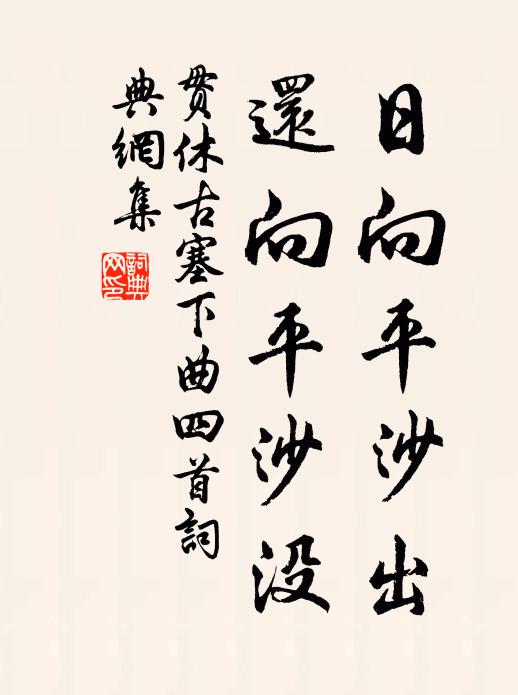 日向平沙出
還向平沙没
貫休古塞下曲四首詞
典網集
詞典
网印